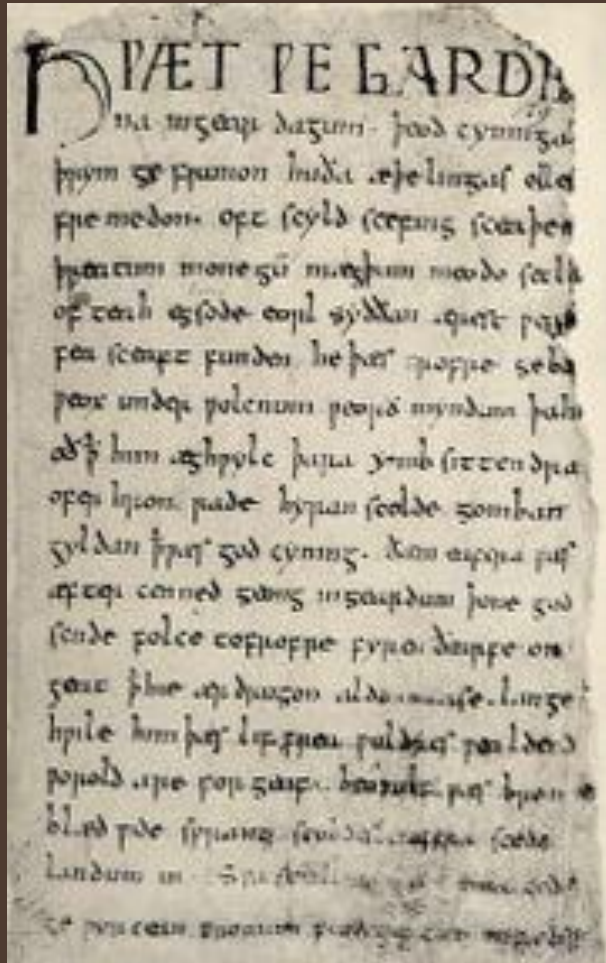 HǷÆT ǷE GARDE
na ingear dagum. þeod cyninga
þrym ge frunon huða æþelingas ellen
fremedon. oft scyld scefing sceaþen
þreatum monegū mægþum meodo setla
of teah egsode eorl syððan ærest ƿearð
fea sceaft funden he þæs frofre geba
ƿeox under ƿolcnum ƿeorð myndum þah
oð þꝥ him æghƿylc þara ymb sittendra
ofer hron rade hyran scolde gomban
gyldan þꝥ ƿæs god cyning. ðæm eafera ƿæs
æfter cenned geong in geardum þone god
sende folce tofrofre fyren ðearfe on
geat þꝥ hie ær drugon aldor lange
hƿile him þæs lif frea ƿuldres ƿealdend
ƿorold are for geaf. ƿæs breme
blæd ƿide sprang scyldes eafera scede
landum in